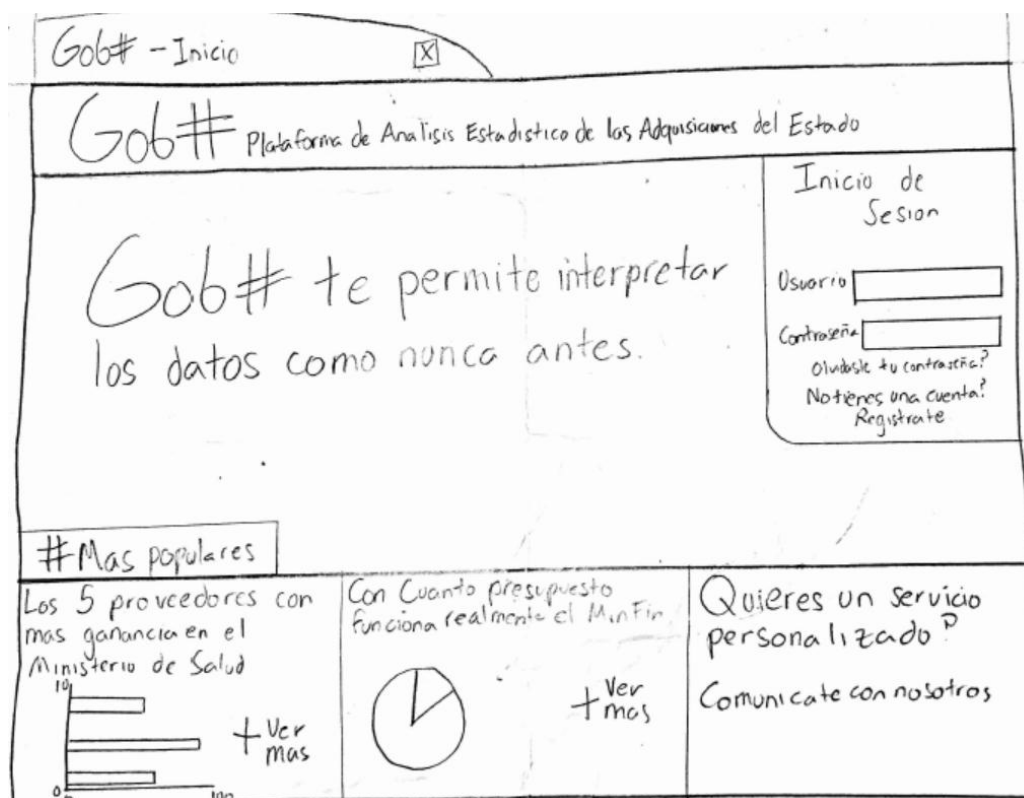 Gob# - Inicio
X
Gob# Plataforma de Analisis Estadistico de las Adquisiciones del Estado
Gob# te permite interpretar
los datos como nunca antes.
Inicio de
Sesion
Usuario
Contraseña
Olvidaste tu contraseña?
No tienes una cuenta?
Registrate
#Mas populares
Los 5 proveedores con
mas ganancia en el
Ministerio de Salud
10
0
0
100
+ Ver
mas
Con Cuanto presupuesto
funciona realmente el MinFin
+ Ver
mas
Quieres un servicio
personalizado?
Comunicate con nosotros